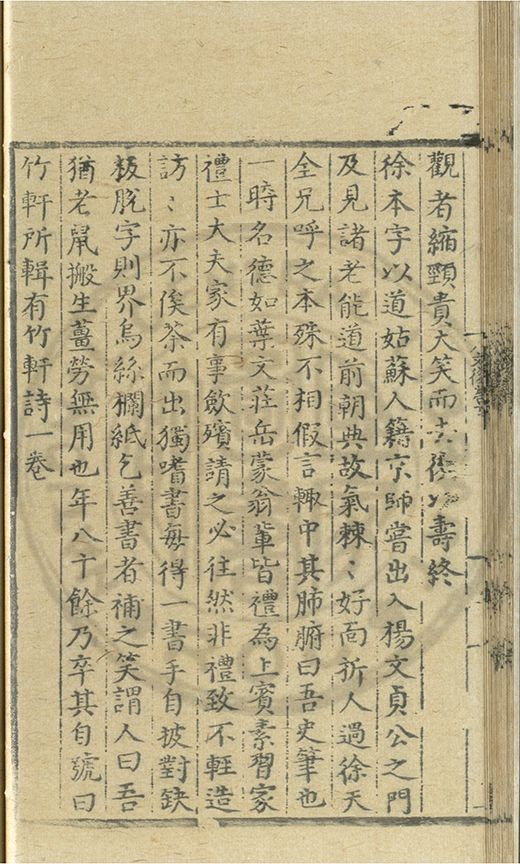 觀者縮頸貴大笑而去後以壽終
徐本字以道姑蘇人籍京師嘗出入楊文貞公之門
及見諸老能道前朝典故氣棘〻好面折人過徐天
全兄呼之本殊不相假言輙中其肺腑曰吾史筆也
一時名德如葉文莊岳蒙翁輩皆禮為上賓素習家
禮士大夫家有事斂殯請之必往然非禮致不輕造
訪〻亦不俟茶而出獨嗜書每得一書手自披對缺
板脫字則界烏絲欄紙乞善書者補之笑謂人曰吾
猶老鼠搬生薑勞無用也年八十餘乃卒其自號曰
竹軒所輯有竹軒詩一卷